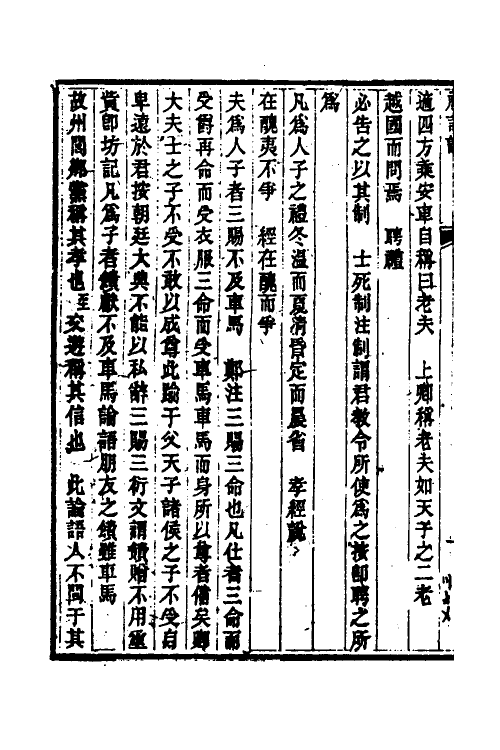 適四方乘安車自稱曰老夫　上卿稱老夫如天子之二老
越國而問焉　聘禮
必告之以其制　士死制注制謂君教令所使爲之按卽聘之所
爲
凡爲人子之禮冬溫而夏凊昏定而晨省　孝經說
在醜夷不爭　經在醜而爭
夫爲人子者三賜不及車馬　鄭注三賜三命也凡仕者三命而
受爵再命而受衣服三命而受車馬車馬而身所以尊者備矣鄉
大夫士之子不受不敢以成尊此踰于父天子諸侯之子不受自
卑遠於君按朝廷大典不能以私辭三賜三衍文謂饋贈不用重
賞卽坊記凡爲子者饋獻不及車馬論語朋友之饋雖車馬
故州閭鄉黨稱其孝也至交遊稱其信也　此論語人不間于其